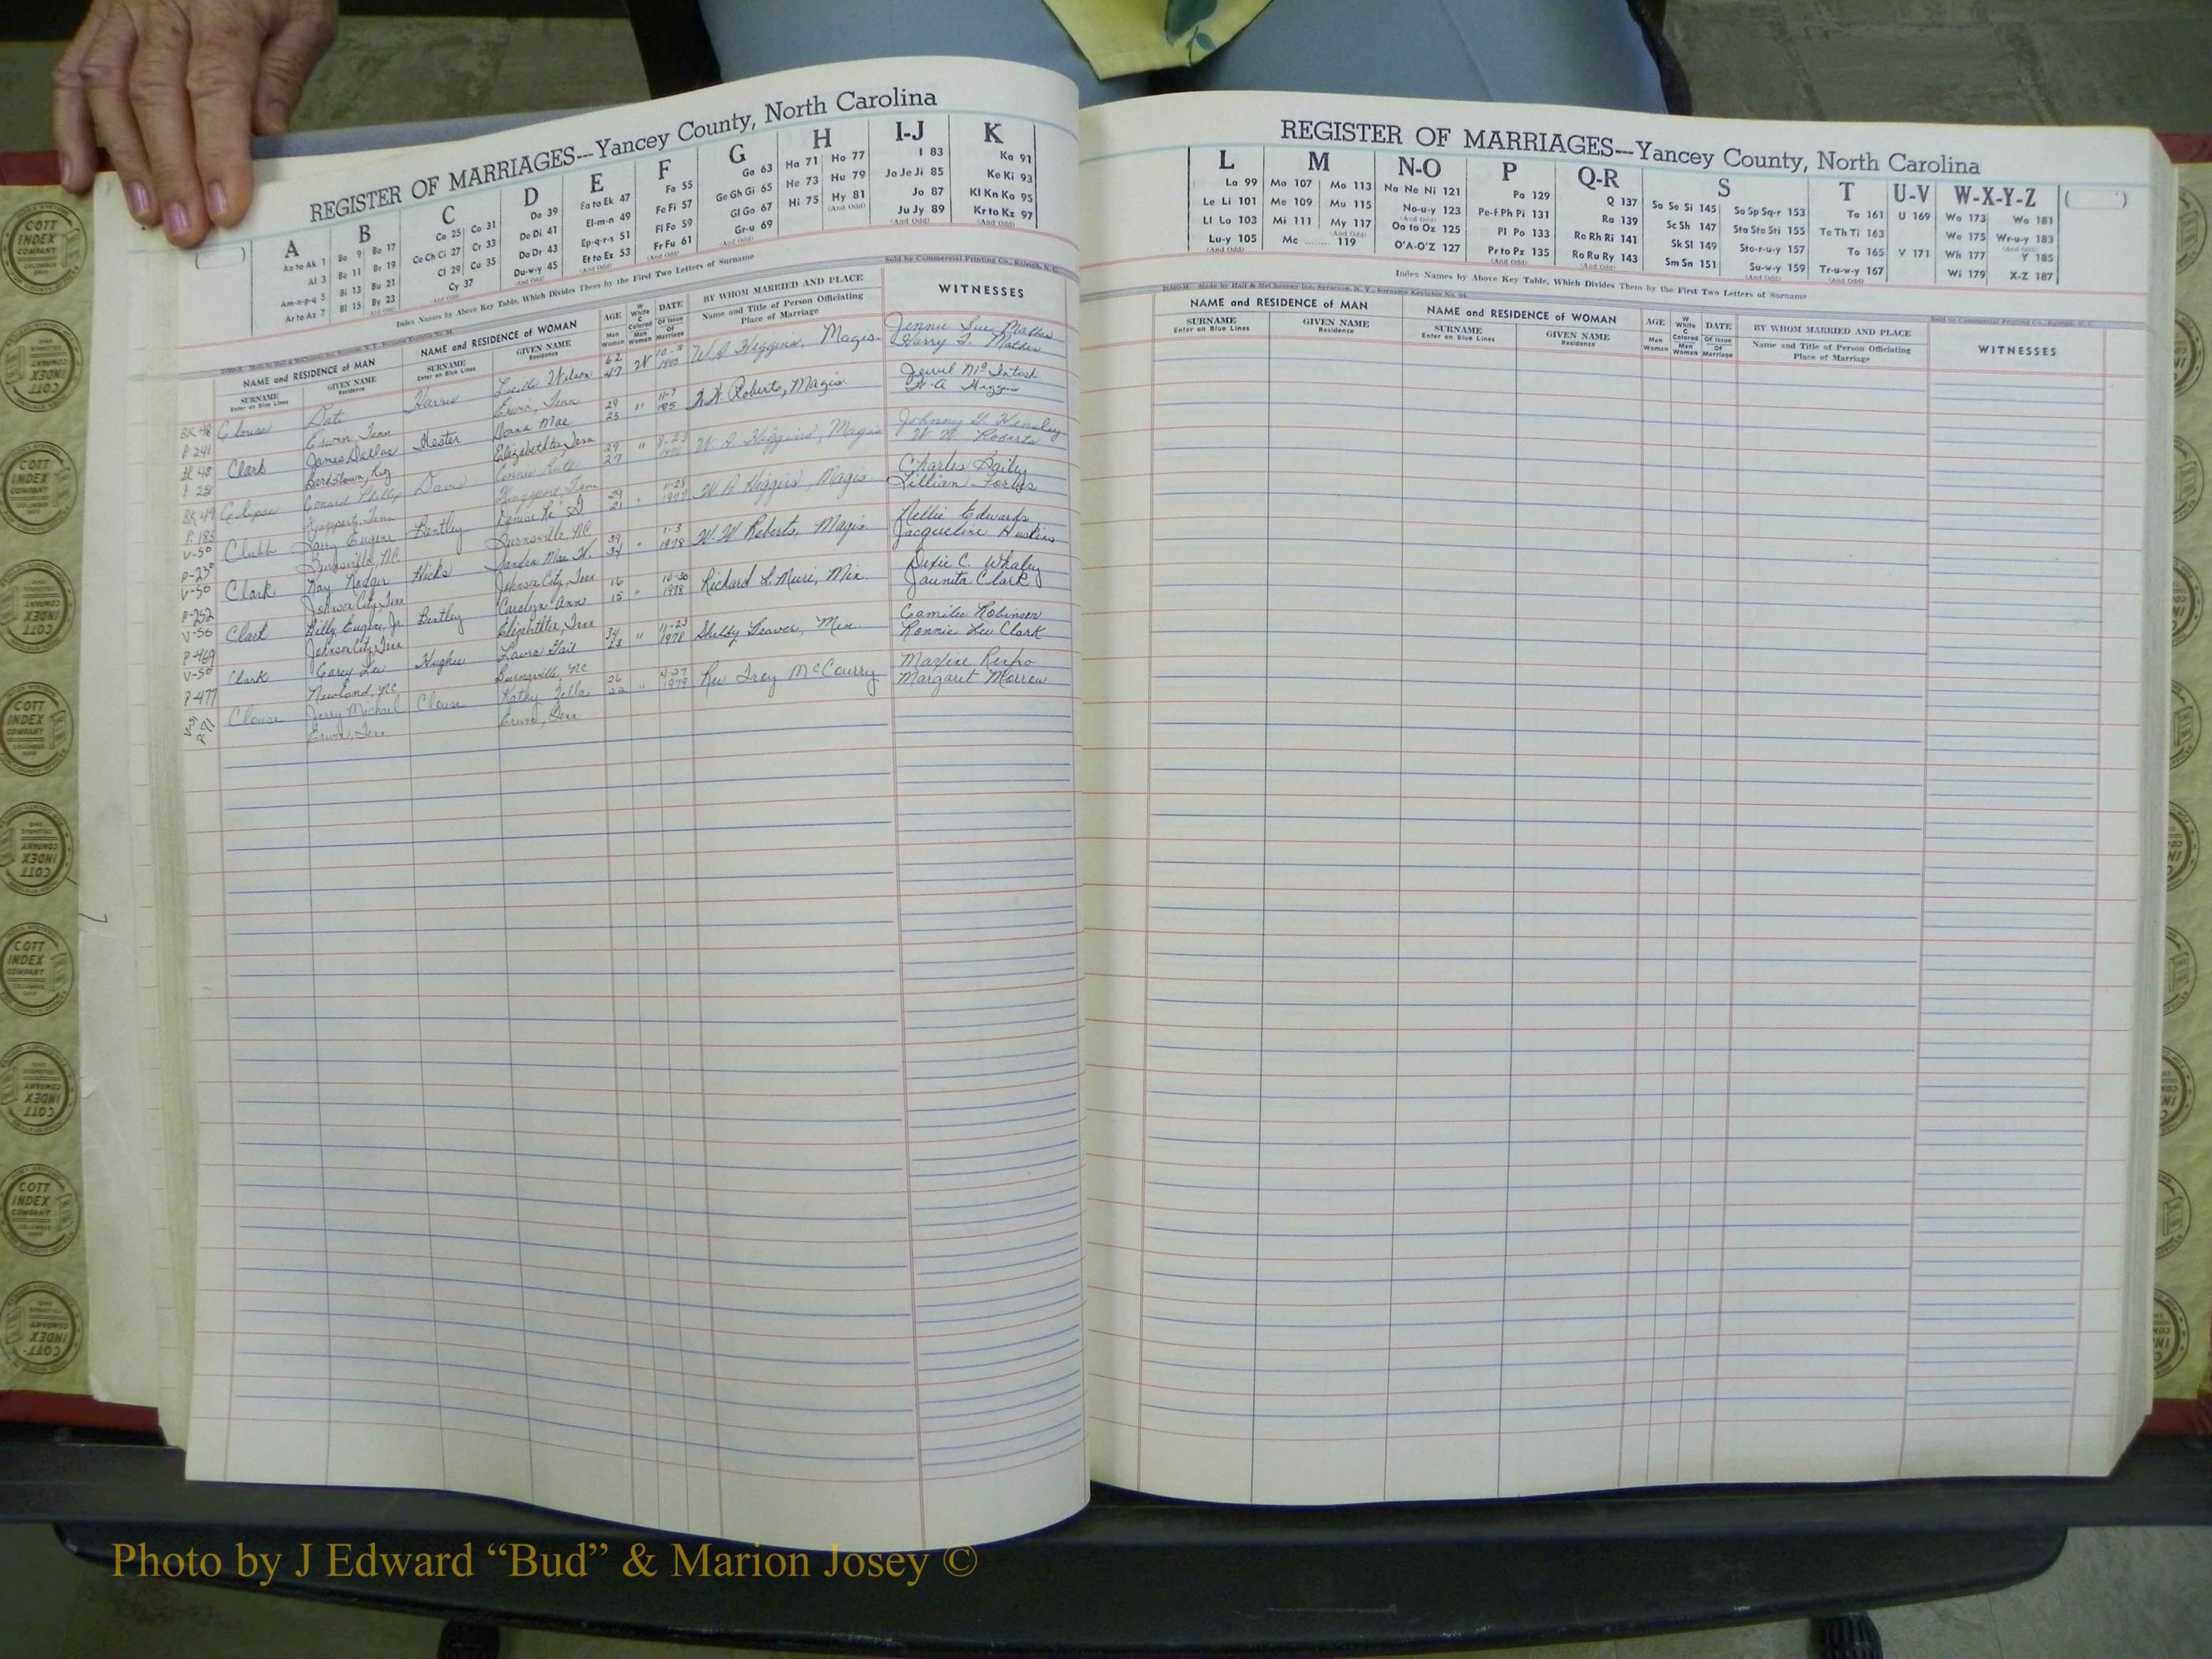 REGISTER OF MARRIAGES---Yancey County, North Carolina
A B C D E F G H I-J K
Aa to Ak 1 Ba 9 Bo 17 Ca 25 Co 31 Da 39 Ea to Ek 47 Fa 55 Ga 63 Ha 71 Ho 77 I 83 Ka 91
Al 3 Be 11 Br 19 Ce Ch Ci 27 Cr 33 De Di 41 El-m-n 49 Fe Fi 57 Ge Gh Gi 65 He 73 Hu 79 Ja Je Ji 85 Ke Ki 93
Am-n-p-q 5 Bi 13 Bu 21 Cl 29 Cu 35 Do Dr 43 Ep-q-r-s 51 Fl Fo 59 Gl Go 67 Hi 75 Hy 81 Jo 87 Kl Kn Ko 95
Ar to Az 7 Bl 15 By 23 Cy 37 Du-w-y 45 Et to Ez 53 Fr Fu 61 Gr-u 69 Ju Jy 89 Kr to Kz 97
Index Names by Above Key Table, Which Divides Them by the First Two Letters of Surname
Sold by Commercial Printing Co., Raleigh, N. C.
NAME and RESIDENCE of MAN NAME and RESIDENCE of WOMAN AGE W White C Colored DATE BY WHOM MARRIED AND PLACE WITNESSES
SURNAME GIVEN NAME SURNAME GIVEN NAME Man Man Of Issue Name and Title of Person Officiating
Enter on Blue Lines Residence Enter on Blue Lines Residence Woman Woman Of Marriage Place of Marriage
BK 48 Clouse Harris Lucille Wilson 62 W W A Higgins, Magis. Jennie Sue Mathes
P 241 Erwin, Tenn Erwin, Tenn 47 Harry Mathes
Clark James Dallas Hester Donna Mae 29 " 11-7 W. W. Roberts, Magis. Jewel McIntosh
Bardstown, Ky Elizabethton, Tenn 23
BK 49 David Connie Ruth 29 " 8-23 W A Higgins, Magis Johnny Hensley
P 185 Tenn Kingsport, Tenn 27 W. W. Roberts
V-50 Clubb Larry Eugene Bentley 29 " 11-28 W A Higgins, Magis. Charles Baily
P-230 Burnsville, NC Burnsville, NC 21 1977 Lillian Forbes
V-50 Clark Ray Rodger Hicks Sandra Mae W. 39 " 1-3 W. W Roberts, Magis. Nellie Edwards
P-252 Johnson City, Tenn Johnson City, Tenn 34 1978 Jacqueline Huskins
V-50 Clark Billy Eugene, Jr Bentley Carolyn Ann 16 " 10-30 Richard L. Muri, Min. Dixie C. Whaley
P-469 Johnson City, Tenn Elizabethton, Tenn 15 1978 Jaunita Clark
V-50 Clark Carey Lee Hughes Laura Gail 34 " 11-23 Shelby Deaver, Min. Camilee Robinson
P-477 Newland, NC Burnsville, NC 23 1978 Ronnie Lee Clark
Clouse Jerry Michael Clouse Kathy Zella 26 " 4-27 Rev Troy McCourry Maxine Renfro
Erwin, Tenn Erwin, Tenn 22 1979 Margaret Morrow
REGISTER OF MARRIAGES---Yancey County, North Carolina
L M N-O P Q-R S T U-V W-X-Y-Z
La 99 Ma 107 Mo 113 Na Ne Ni 121 Pa 129 Q 137 Sa Se Si 145 So Sp Sq-r 153 Ta 161 U 169 Wa 173 Wo 181
Le Li 101 Me 109 Mu 115 No-u-y 123 Pe-f Ph Pi 131 Ra 139 Sc Sh 147 Sta Ste Sti 155 Te Th Ti 163 We 175 Wr-u-y 183
Ll Lo 103 Mi 111 My 117 Oa to Oz 125 Pl Po 133 Re Rh Ri 141 Sk Sl 149 Sto-r-u-y 157 To 165 V 171 Wh 177 Y 185
Lu-y 105 Mc 119 O'A-O'Z 127 Pr to Pz 135 Ro Ru Ry 143 Sm Sn 151 Su-w-y 159 Tr-u-w-y 167 Wi 179 X-Z 187
Index Names by Above Key Table, Which Divides Them by the First Two Letters of Surname
Sold by Commercial Printing Co., Raleigh, N. C.
NAME and RESIDENCE of MAN NAME and RESIDENCE of WOMAN AGE W White C Colored DATE BY WHOM MARRIED AND PLACE WITNESSES
SURNAME GIVEN NAME SURNAME GIVEN NAME Man Man Of Issue Name and Title of Person Officiating
Enter on Blue Lines Residence Enter on Blue Lines Residence Woman Woman Of Marriage Place of Marriage
COTT INDEX COMPANY COLUMBUS OHIO
Photo by J Edward “Bud” & Marion Josey ©